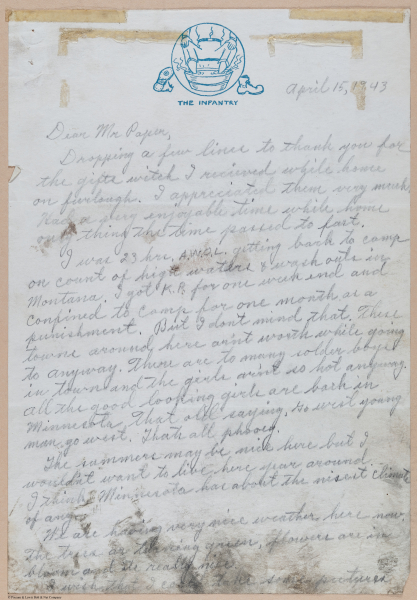 THE INFANTRY
April 15, 1943
Dear Mr. Paper,
Dropping a few lines to thank you for
the gifts witch I recieved while home
on furlough. I appreciated them very much.
Had a very enjoyable time while home
only thing the time passed to fast.
I was 23 hrs. A.W.O.L. getting back to camp
on count of high waters & wash outs in
Montana. I got K.P. for one week end and
confined to camp for one month as a
punishment. But I don't mind that, These
towns around here aint worth while going
to anyway. There are to many solder boys
in town and the girls aint so hot anyway.
All the good looking girls are back in
Minnesota, That old saying, Go west young
man, go west. Thats all phooey.
The summers may be nice here but I
wouldn't want to live here year around
I think Minnesota has about the nisest climate
of any
We are having very nice weather here now.
The trees are turning green, flowers are in
bloom and its really nice
some pictures